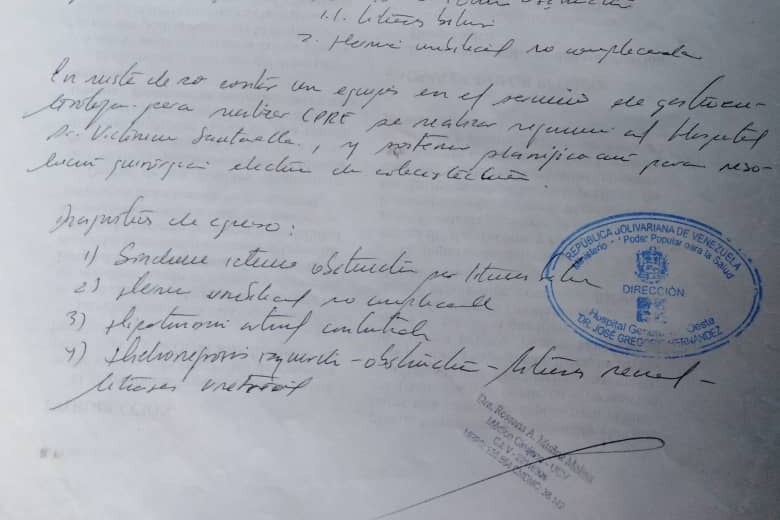 1.1. Litiasis biliar
2. Hernia umbilical no complicada
En vista de no contar con equipos en el servicio de gastroen-
terología para realizar CPRE se realiza referencia al Hospital
Dr. Victorino Santaella, y posterior planificación para reso-
lución quirúrgica electiva de colecistectomía.
Diagnóstico de egreso:
1) Síndrome ictérico obstructivo por litiasis biliar
2) Hernia umbilical no complicada
3) Hipertensión arterial controlada
4) Hidronefrosis izquierda - obstructiva - litiasis renal -
litiasis ureteral
REPÚBLICA BOLIVARIANA DE VENEZUELA
Ministerio Poder Popular para la Salud
DIRECCIÓN
Hospital General Oeste
DR. JOSÉ GREGORIO HERNÁNDEZ
Dra. Rossana A. Muñoz Molina
Médico Cirujano - UCV